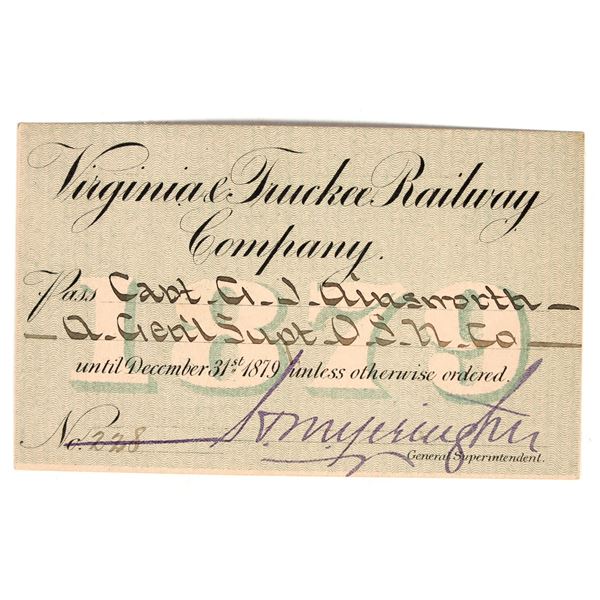 Virginia & Truckee Railway
Company.
1879
Pass Capt. G. J. Ainsworth
A. Genl Supt. O S. N. Co
until December 31st 1879 unless otherwise ordered.
No. 228 H. M. Yerington
General Superintendent.